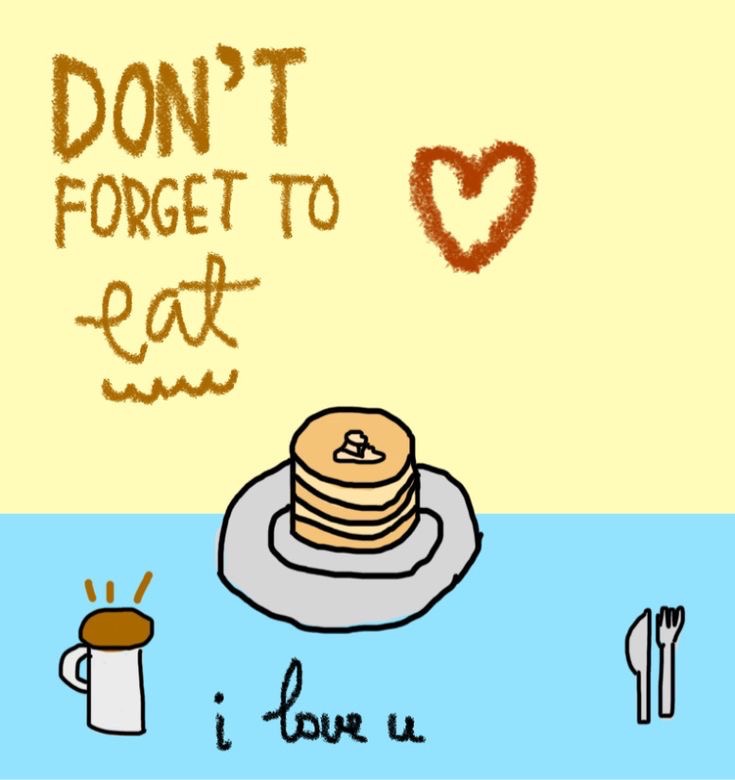 DON'T
FORGET TO
eat
i love u